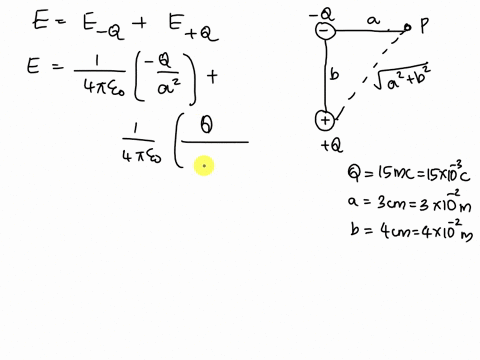 E = E_{-Q} + E_{+Q}
E = \frac{1}{4πε_0} ( \frac{-Q}{a^2} ) +
\frac{1}{4πε_0} ( \frac{Q}{}
-Q
−
a
P
b
\sqrt{a^2+b^2}
+
+Q
Q = 15mC = 15×10^{-3}C
a = 3cm = 3×10^{-2}m
b = 4cm = 4×10^{-2}m